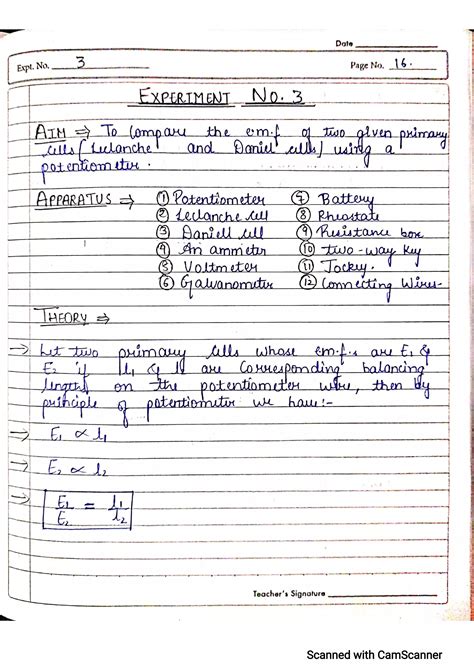 Date
Expt. No. 3
Page No. 16.
EXPERIMENT NO. 3
AIM ⇒ To Compare the e.m.f of two given primary
cells [Leclanche and Daniel cells] using a
potentiometer.
APPARATUS ⇒ ① Potentiometer ⑦ Battery
② Leclanche cell ⑧ Rheostate
③ Daniell cell ⑨ Resistance box
④ An ammeter ⑩ two-way key
⑤ Voltmeter ⑪ Jockey.
⑥ Galvanometer ⑫ Connecting Wires-
THEORY ⇒
→ Let two primary cells whose em.f.s are E₁ &
E₂ if l₁ & l₂ are corresponding balancing
lengths on the potentiometer wire, then by
principle of potentiometer we have:-
→ E₁ ∝ l₁
→ E₂ ∝ l₂
→ E₁/E₂ = l₁/l₂
Teacher's Signature
Scanned with CamScanner